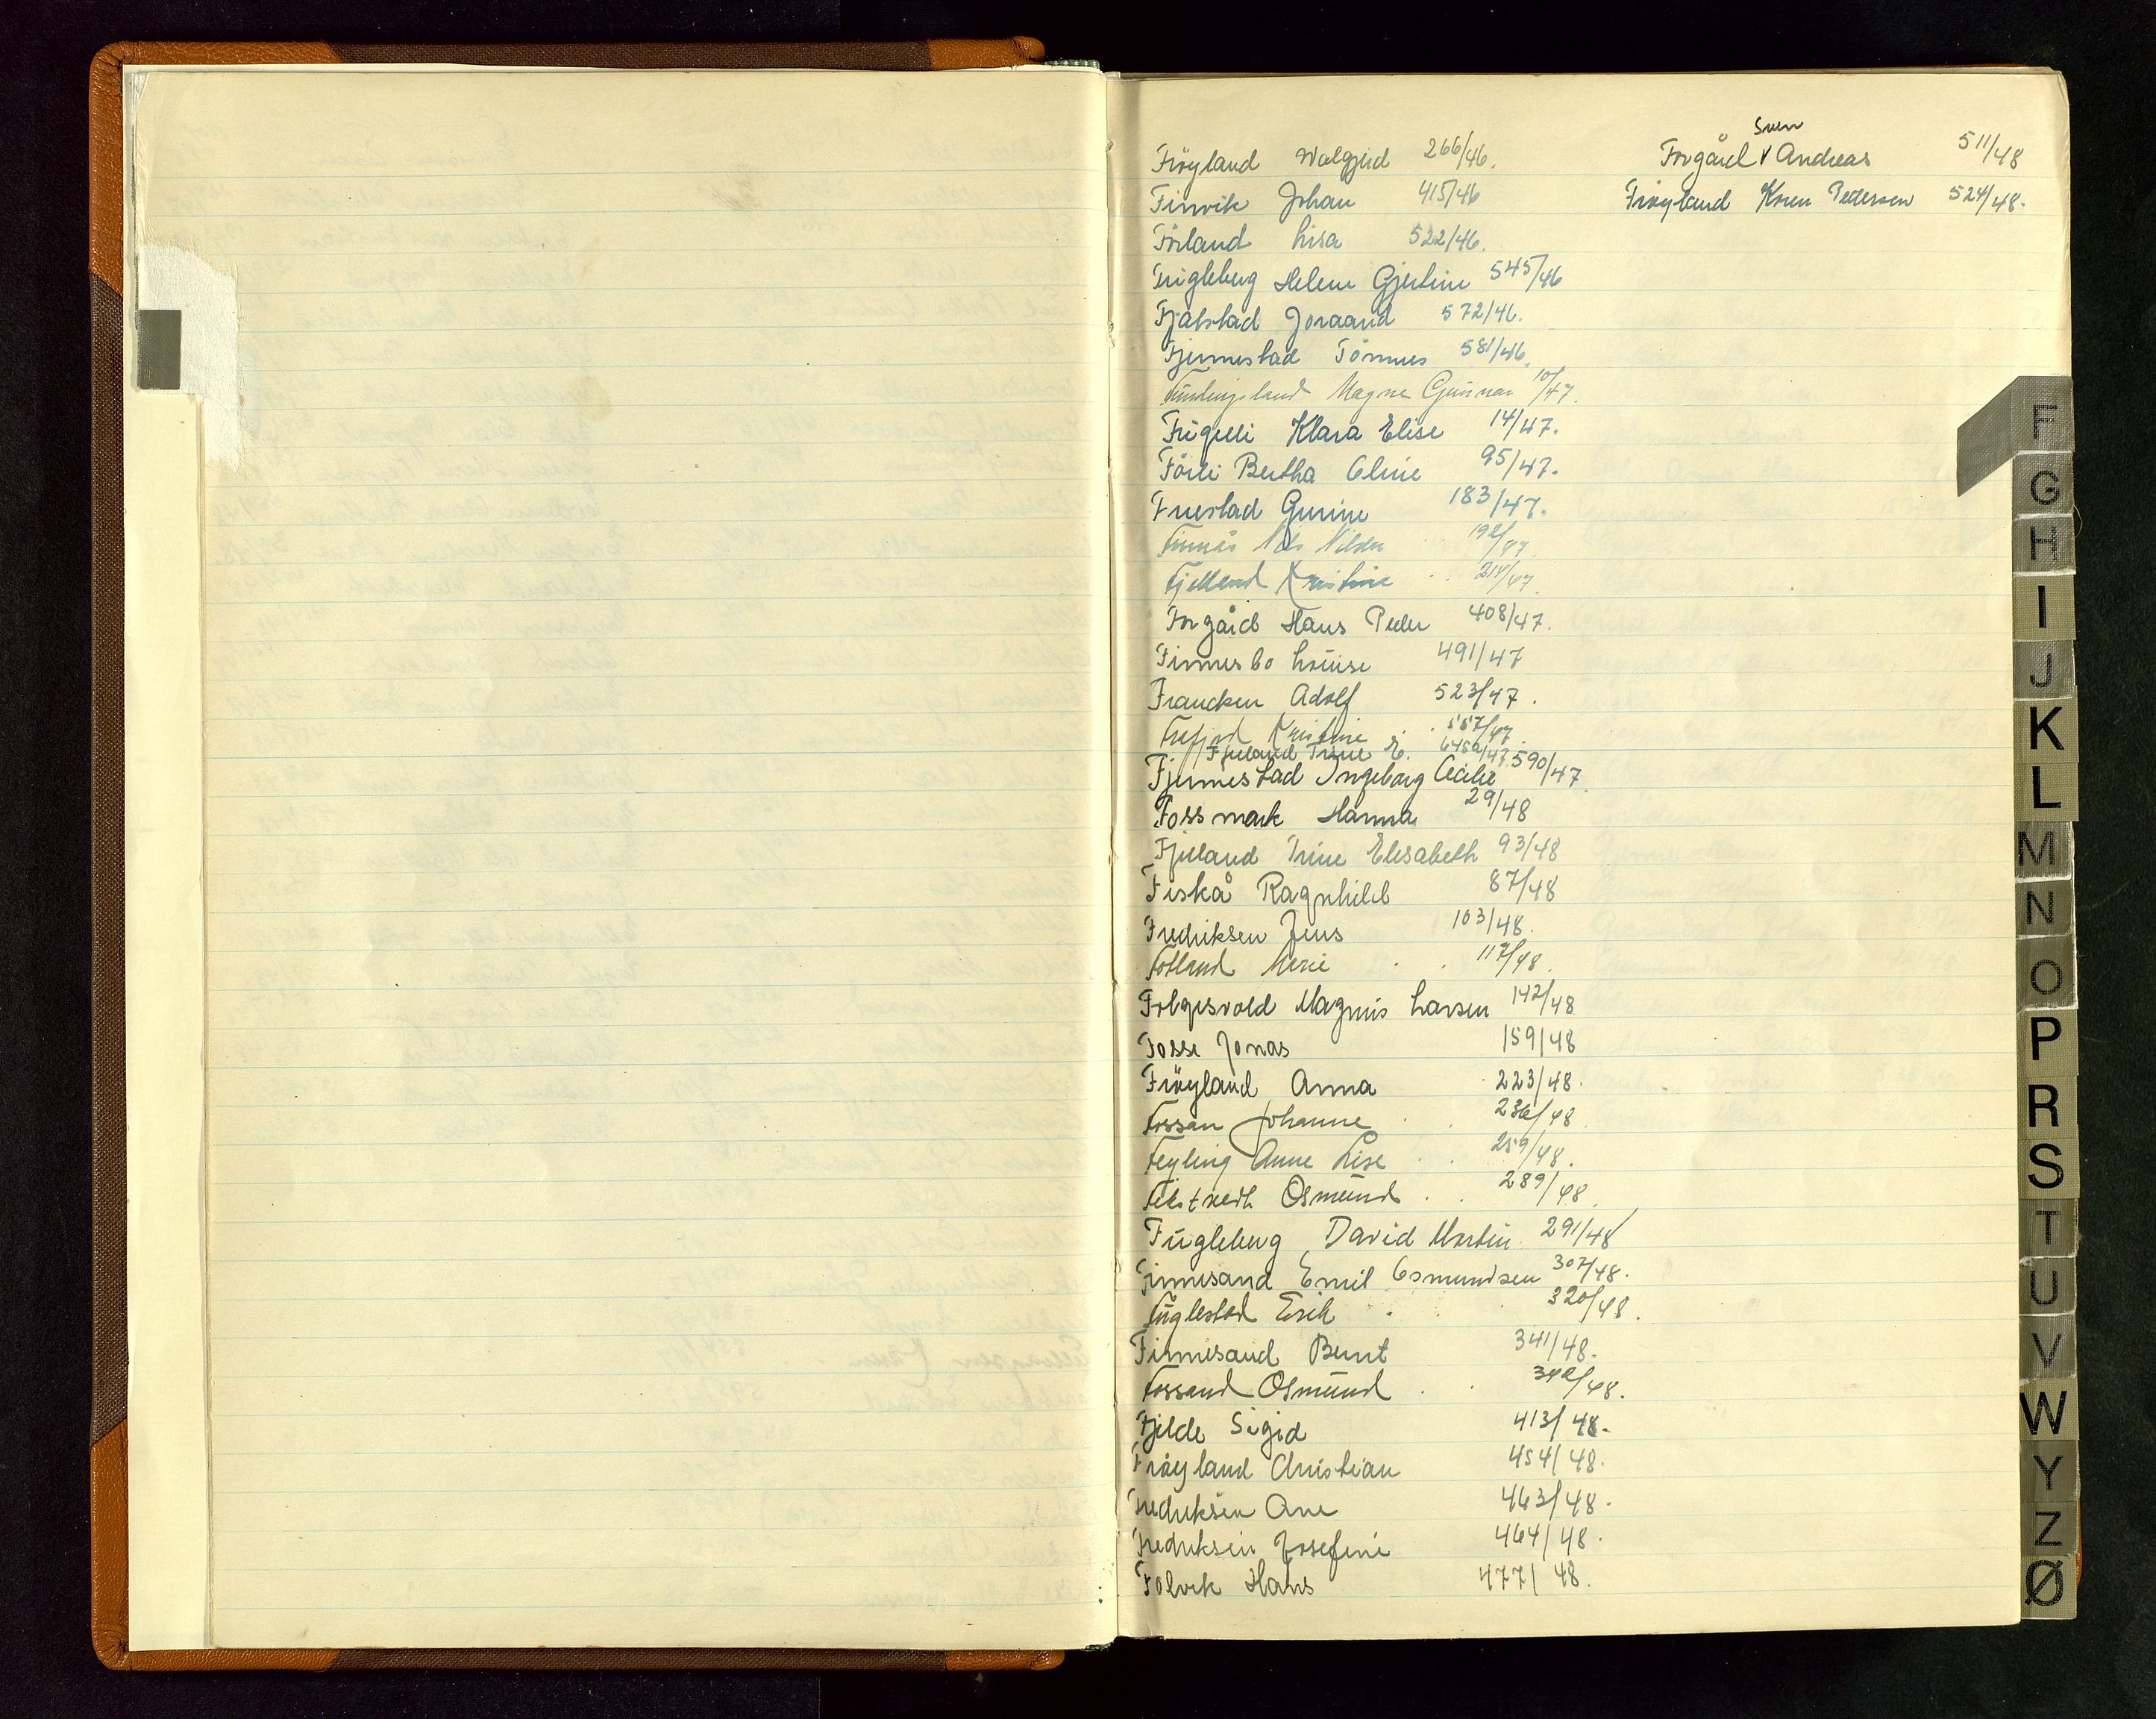 Fröyland Walgjerd 266/46.
Finvik Johan 415/46
Förland Lisa 522/46.
Fugleberg Helene Gjertine 545/46
Fjätstad Joraand 572/46.
Fjermestad Tönnes 581/46.
Magne Gunnar 10/47.
Frigelli Klara Elise 14/47.
Förli Bertha Oline 95/47.
Fuestad Gurine 183/47.
Finnås Nils Nilsen 192/47.
Fjelland Kristine 214/47.
Forgård Hans Peder 408/47.
Finnesbo Louise 491/47
Francken Adolf 523/47.
Kristine 557/47.
Fjeland Trine E. 645a/47.
Fjermestad Ingeborg Cecilie 590/47
Fossmark Hanna 29/48
Fjeland Trine Elisabeth 93/48
Fiskå Ragnhild 87/48
Fredriksen Jens 103/48.
Folland Marie 117/48.
Folgesvold Magnus Larsen 142/48
Fosse Jonas 159/48
Fröyland Anna 223/48.
Fossan Johanne 236/48
Feyling Anne Lise 259/48.
Osmund 289/48.
Fugleberg David Martin 291/48
Finnesand Emil Osmundsen 307/48.
Fuglestad Erik 320/48.
Finnesand Bernt 341/48.
Fossand Osmund 342/48.
Fjelde Sigid 413/48.
Fröyland Christian 454/48.
Fredriksen Ane 463/48.
Fredriksen Josefine 464/48.
Folvik Hans 477/48.
Sven
Forgård V Andreas 511/48
Fröyland Karen Pedersen 524/48.
F
G
H
I
J
K
L
M
N
O
P
R
S
T
U
V
W
Y
Z
Ø